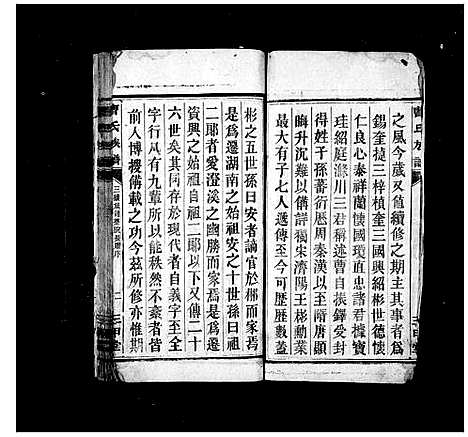 之風今歲又值續修之期主其事者為
錫奎提三梓楨奎三國興紹彬世德懷
仁良心泰祥蘭懷國環直忠諸君據寶
珪紹庭滌川三君稱述曹自振鐸受封
得姓千孫蕃衍歷周秦漢以至隋唐顯
晦升沉難以備詳獨宋濟陽王彬勳業
最大有子七人遞傳至今可歷歷數蓋
彬之五世孫日安者謫官於郴而家焉
是為遷湖南之始祖安之十世孫曰祖
二郎者愛澄溪之幽勝而家焉是為遷
資興之始祖自祖二郎以下又傳二十
六世矣其同存於現代者自義字至全
字行凡有九輩所以能秩然不紊者皆
前人博搜備載之功今茲所修亦惟期
曹氏族譜
二